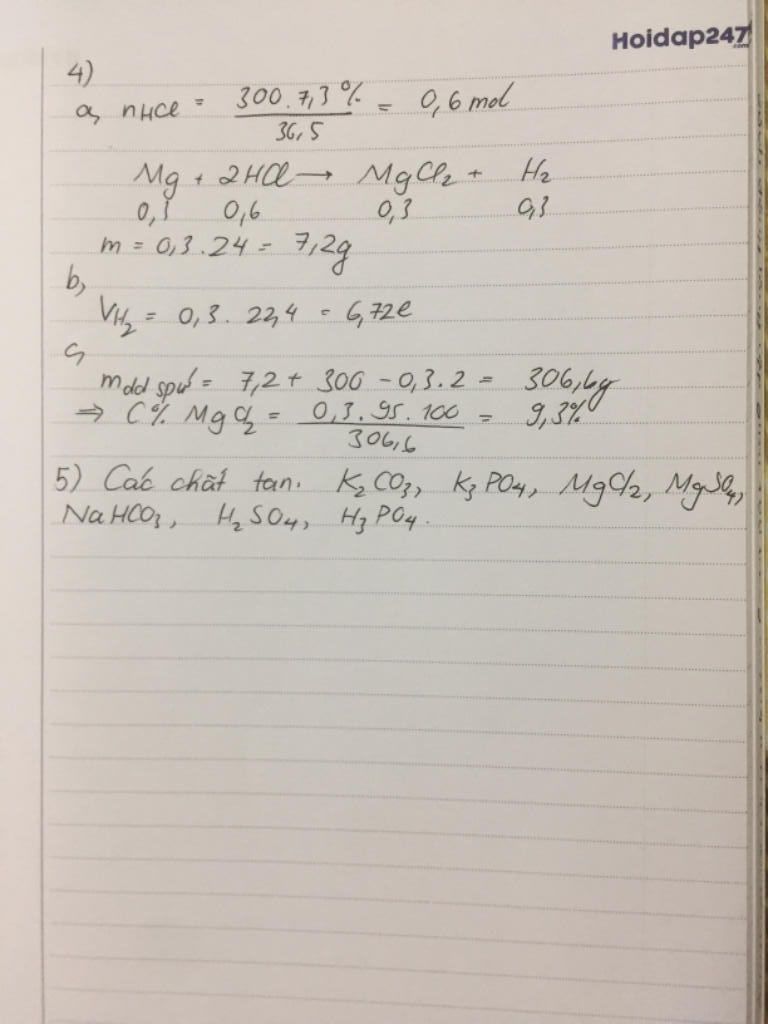 Hoidap247.com
4)
a, nHCl = 300.7,3% / 36,5 = 0,6 mol
Mg + 2HCl → MgCl2 + H2
0,3 0,6 0,3 0,3
m = 0,3.24 = 7,2g
b,
VH2 = 0,3. 22,4 = 6,72l
c,
mdd spứ = 7,2 + 300 - 0,3.2 = 306,6g
⇒ C% MgCl2 = 0,3.95.100 / 306,6 = 9,3%
5) Các chất tan. K2CO3, K3PO4, MgCl2, MgSO4,
NaHCO3, H2SO4, H3PO4.